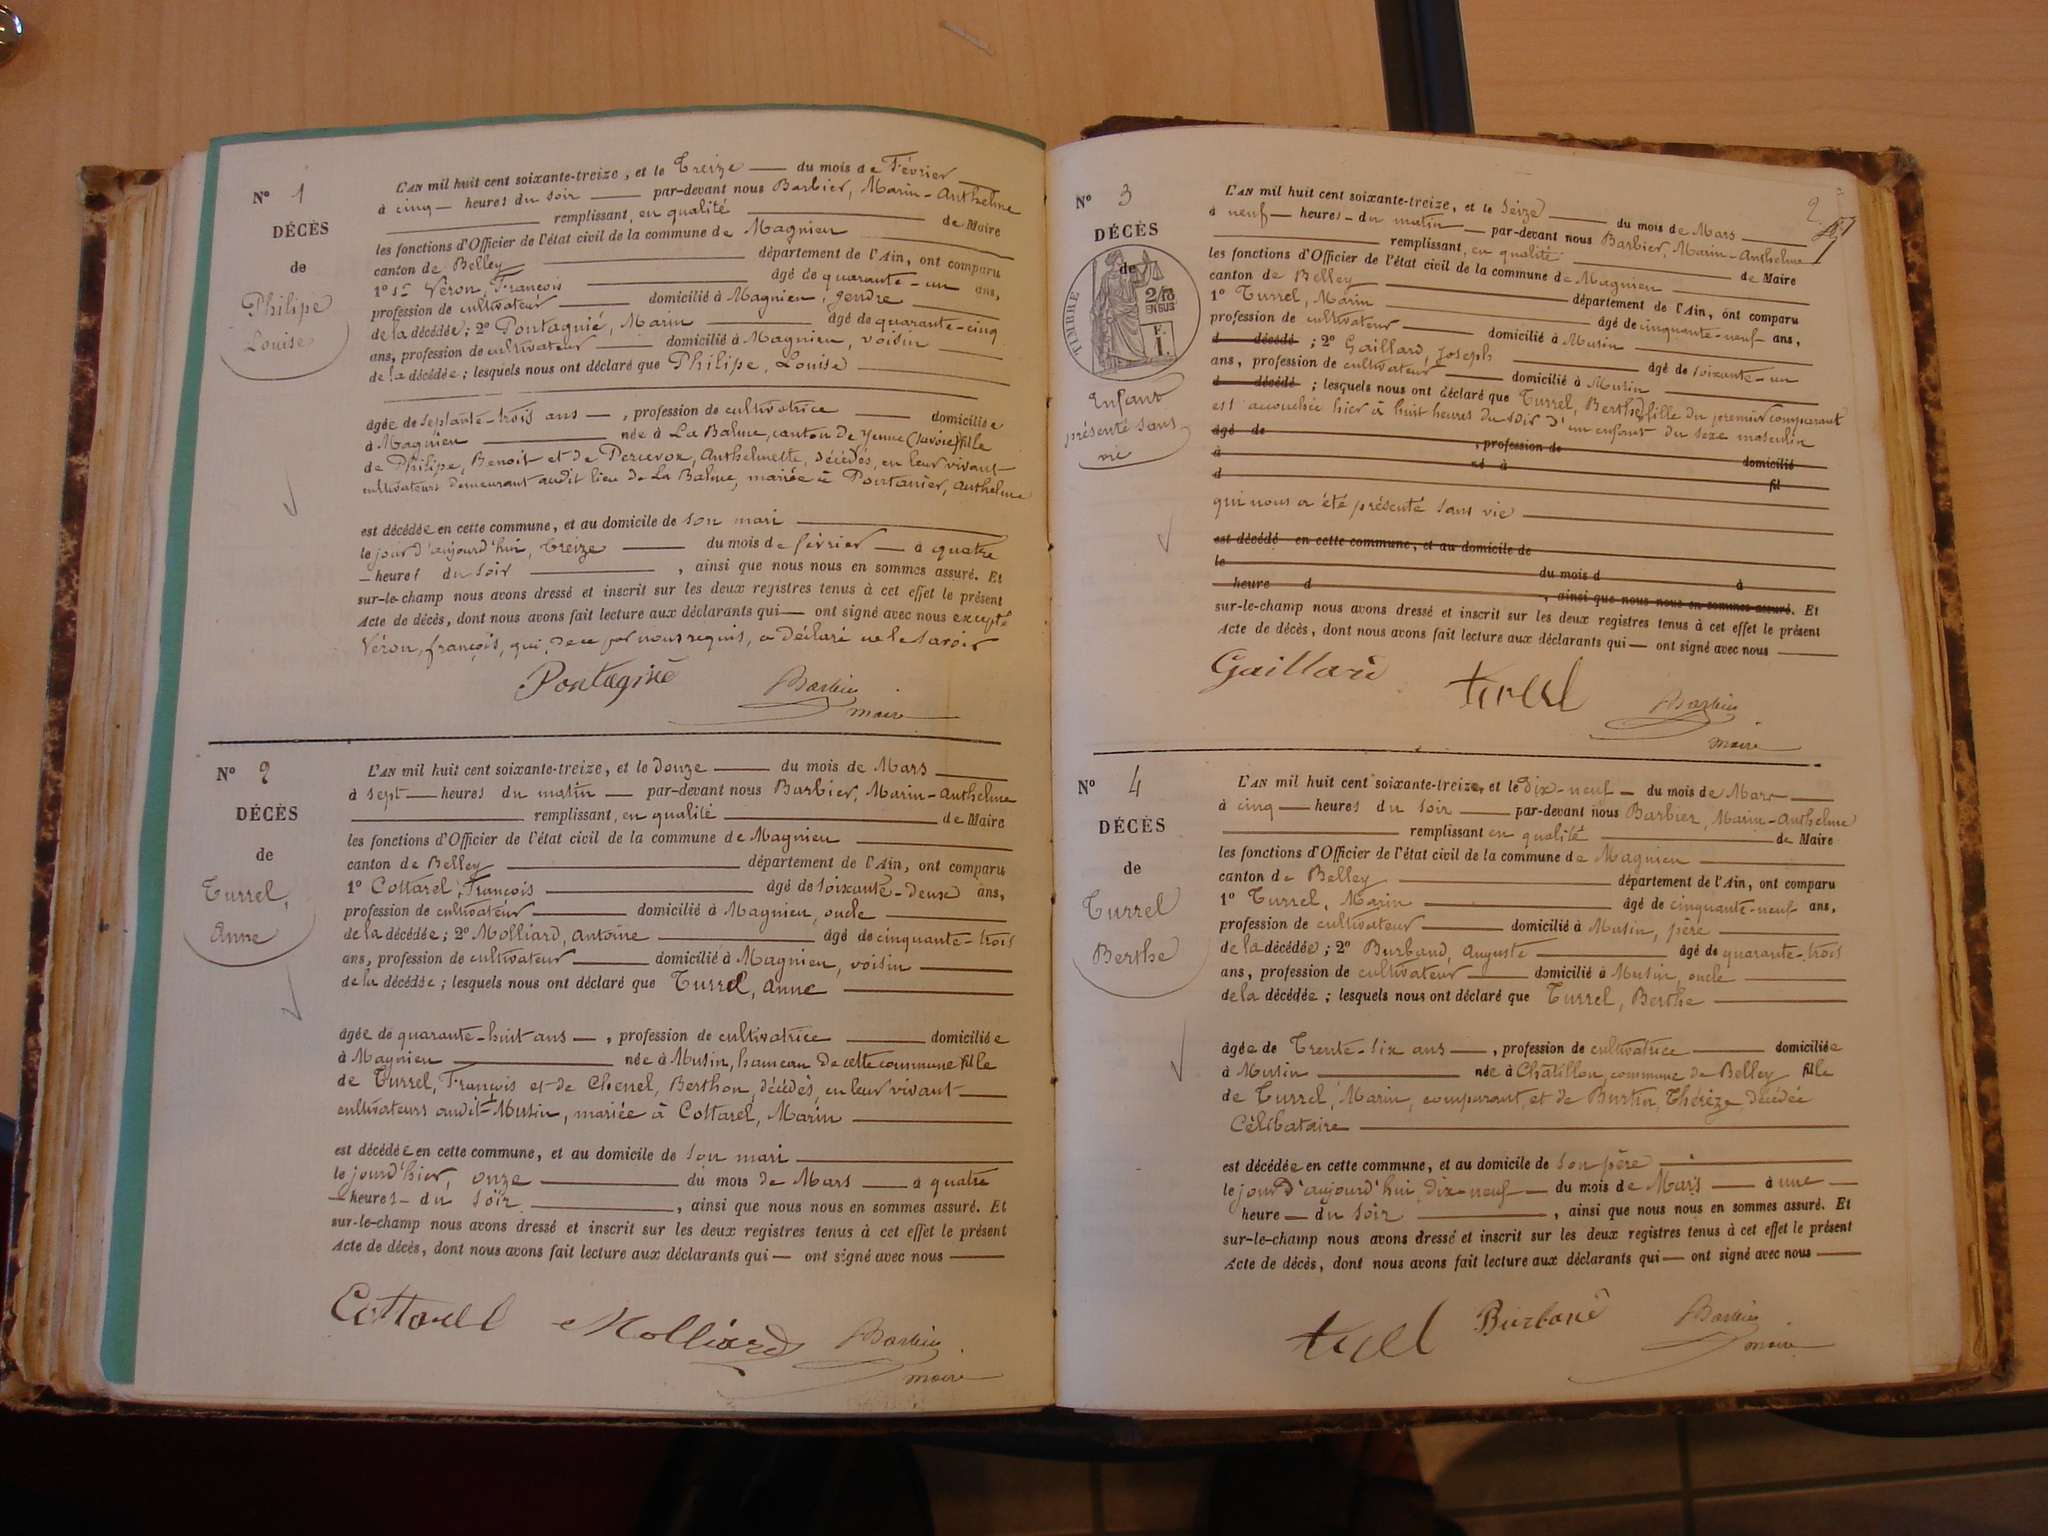 N° 1
DÉCÈS
de
Philipe
Louise
L'AN mil huit cent soixante-treize, et le Treize du mois de Février
à cinq heures du soir par-devant nous Barbier, Marin-Anthelme
remplissant, en qualité de Maire
les fonctions d'Officier de l'état civil de la commune de Magnieu
canton de Belley département de l'Ain, ont comparu
1° sr Véron, François âgé de quarante-un ans,
profession de cultivateur domicilié à Magnieu, gendre
de la décédée ; 2° Pontagnié, Marin âgé de quarante-cinq
ans, profession de cultivateur domicilié à Magnieu, voisin
de la décédée ; lesquels nous ont déclaré que Philipe, Louise
âgée de septante-trois ans, profession de cultivatrice domiciliée
à Magnieu née à La Balme, canton de Yenne (Savoie) fille
de Philipe, Benoit et de Anthelmette, décédés, en leur vivant
cultivateurs demeurant audit lieu de La Balme, mariée à Pontanier, Anthelme
est décédée en cette commune, et au domicile de son mari
le jour d'aujourd'hui, treize du mois de février à quatre
heures du soir, ainsi que nous nous en sommes assuré. Et
sur-le-champ nous avons dressé et inscrit sur les deux registres tenus à cet effet le présent
Acte de décès, dont nous avons fait lecture aux déclarants qui ont signé avec nous excepté
Véron, françois, qui, de ce par nous requis, a déclaré ne le savoir
Pontagnié Barbier
maire
N° 2
DÉCÈS
de
Turrel,
Anne
L'AN mil huit cent soixante-treize, et le douze du mois de Mars
à sept heures du matin par-devant nous Barbier, Marin-Anthelme
remplissant, en qualité de Maire
les fonctions d'Officier de l'état civil de la commune de Magnieu
canton de Belley département de l'Ain, ont comparu
1° Cottarel, François âgé de soixante-deux ans,
profession de cultivateur domicilié à Magnieu, oncle
de la décédée ; 2° Molliard, Antoine âgé de cinquante-trois
ans, profession de cultivateur domicilié à Magnieu, voisin
de la décédée ; lesquels nous ont déclaré que Turrel, Anne
âgée de quarante-huit ans, profession de cultivatrice domiciliée
à Magnieu née à Musin, hameau de cette commune fille
de Turrel, François et de Chenel, Berthon, décédés, en leur vivant
cultivateurs audit Musin, mariée à Cottarel, Marin
est décédée en cette commune, et au domicile de son mari
le jour d'hier, onze du mois de Mars à quatre
heures du soir, ainsi que nous nous en sommes assuré. Et
sur-le-champ nous avons dressé et inscrit sur les deux registres tenus à cet effet le présent
Acte de décès, dont nous avons fait lecture aux déclarants qui ont signé avec nous
Cottarel Molliard Barbier
maire
2
N° 3
DÉCÈS
de
TIMBRE
2/10
EN SUS
F.
I.
Enfant
présenté sans
vie
L'AN mil huit cent soixante-treize, et le seize du mois de Mars
à neuf heures du matin par-devant nous Barbier, Marin-Anthelme
remplissant, en qualité de Maire
les fonctions d'Officier de l'état civil de la commune de Magnieu
canton de Belley département de l'Ain, ont comparu
1° Turrel, Marin âgé de cinquante-neuf ans,
profession de cultivateur domicilié à Musin
d décédé ; 2° Gaillard, Joseph âgé de soixante-un
ans, profession de cultivateur domicilié à Musin
d décédé ; lesquels nous ont déclaré que Turrel, Berthe, fille du premier comparant
est accouchée hier à huit heures du soir d'un enfant du sexe masculin
âgé de, profession de domicilié
à né à
d fil
qui nous a été présenté sans vie
est décédé en cette commune, et au domicile de
le du mois d à
heure d, ainsi que nous nous en sommes assuré. Et
sur-le-champ nous avons dressé et inscrit sur les deux registres tenus à cet effet le présent
Acte de décès, dont nous avons fait lecture aux déclarants qui ont signé avec nous
Gaillard turel Barbier
maire
N° 4
DÉCÈS
de
Turrel
Berthe
L'AN mil huit cent soixante-treize, et le dix-neuf du mois de Mars
à cinq heures du soir par-devant nous Barbier, Marin-Anthelme
remplissant en qualité de Maire
les fonctions d'Officier de l'état civil de la commune de Magnieu
canton de Belley département de l'Ain, ont comparu
1° Turrel, Marin âgé de cinquante-neuf ans,
profession de cultivateur domicilié à Musin, père
de la décédée ; 2° Burband, Auguste âgé de quarante-trois
ans, profession de cultivateur domicilié à Musin, oncle
de la décédée ; lesquels nous ont déclaré que Turrel, Berthe
âgée de Trente-six ans, profession de cultivatrice domiciliée
à Musin née à Châtillon, commune de Belley fille
de Turrel, Marin, comparant, et de Burtin, Thérèze décédée
Célibataire
est décédée en cette commune, et au domicile de son père
le jour d'aujourd'hui, dix-neuf du mois de Mars à une
heure du soir, ainsi que nous nous en sommes assuré. Et
sur-le-champ nous avons dressé et inscrit sur les deux registres tenus à cet effet le présent
Acte de décès, dont nous avons fait lecture aux déclarants qui ont signé avec nous
Burband Barbier
maire